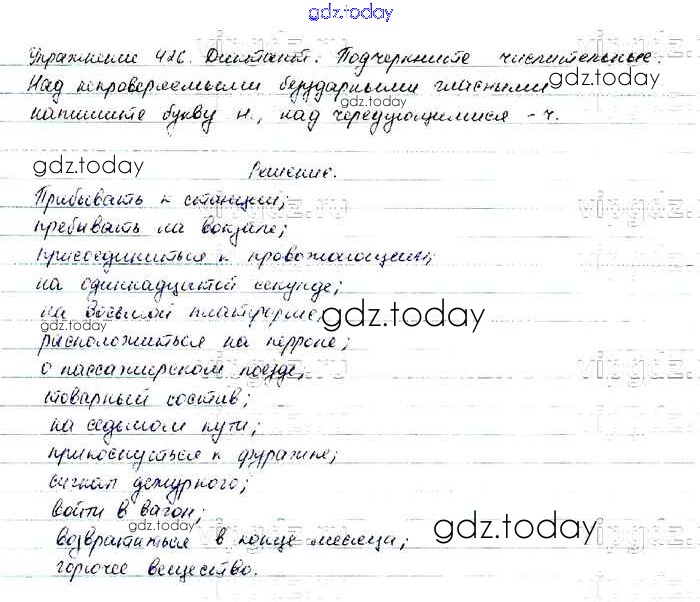 gdz.today
Упражнение 426. Диктант. Подчеркните числительные.
Над непроверяемыми безударными гласными
gdz.today
gdz.today
напишите букву н., над чередующимися - ч.
gdz.today
Решение.
Прибывать к станции;
vipgdz.ru
vipgdz.ru
пребывать на вокзале;
присоединиться к провожающим;
на одиннадцатой секунде;
на восьмой платформе;
gdz.today
gdz.today
расположиться на перроне;
vipgdz.ru
vipgdz.ru
о пассажирском поезде;
товарный состав;
на седьмом пути;
прикоснуться к фуражке;
сигнал дежурного;
vipgdz.ru
vipgdz.ru
войти в вагон;
gdz.today
gdz.today
возвратиться в конце месяца;
горючее вещество.